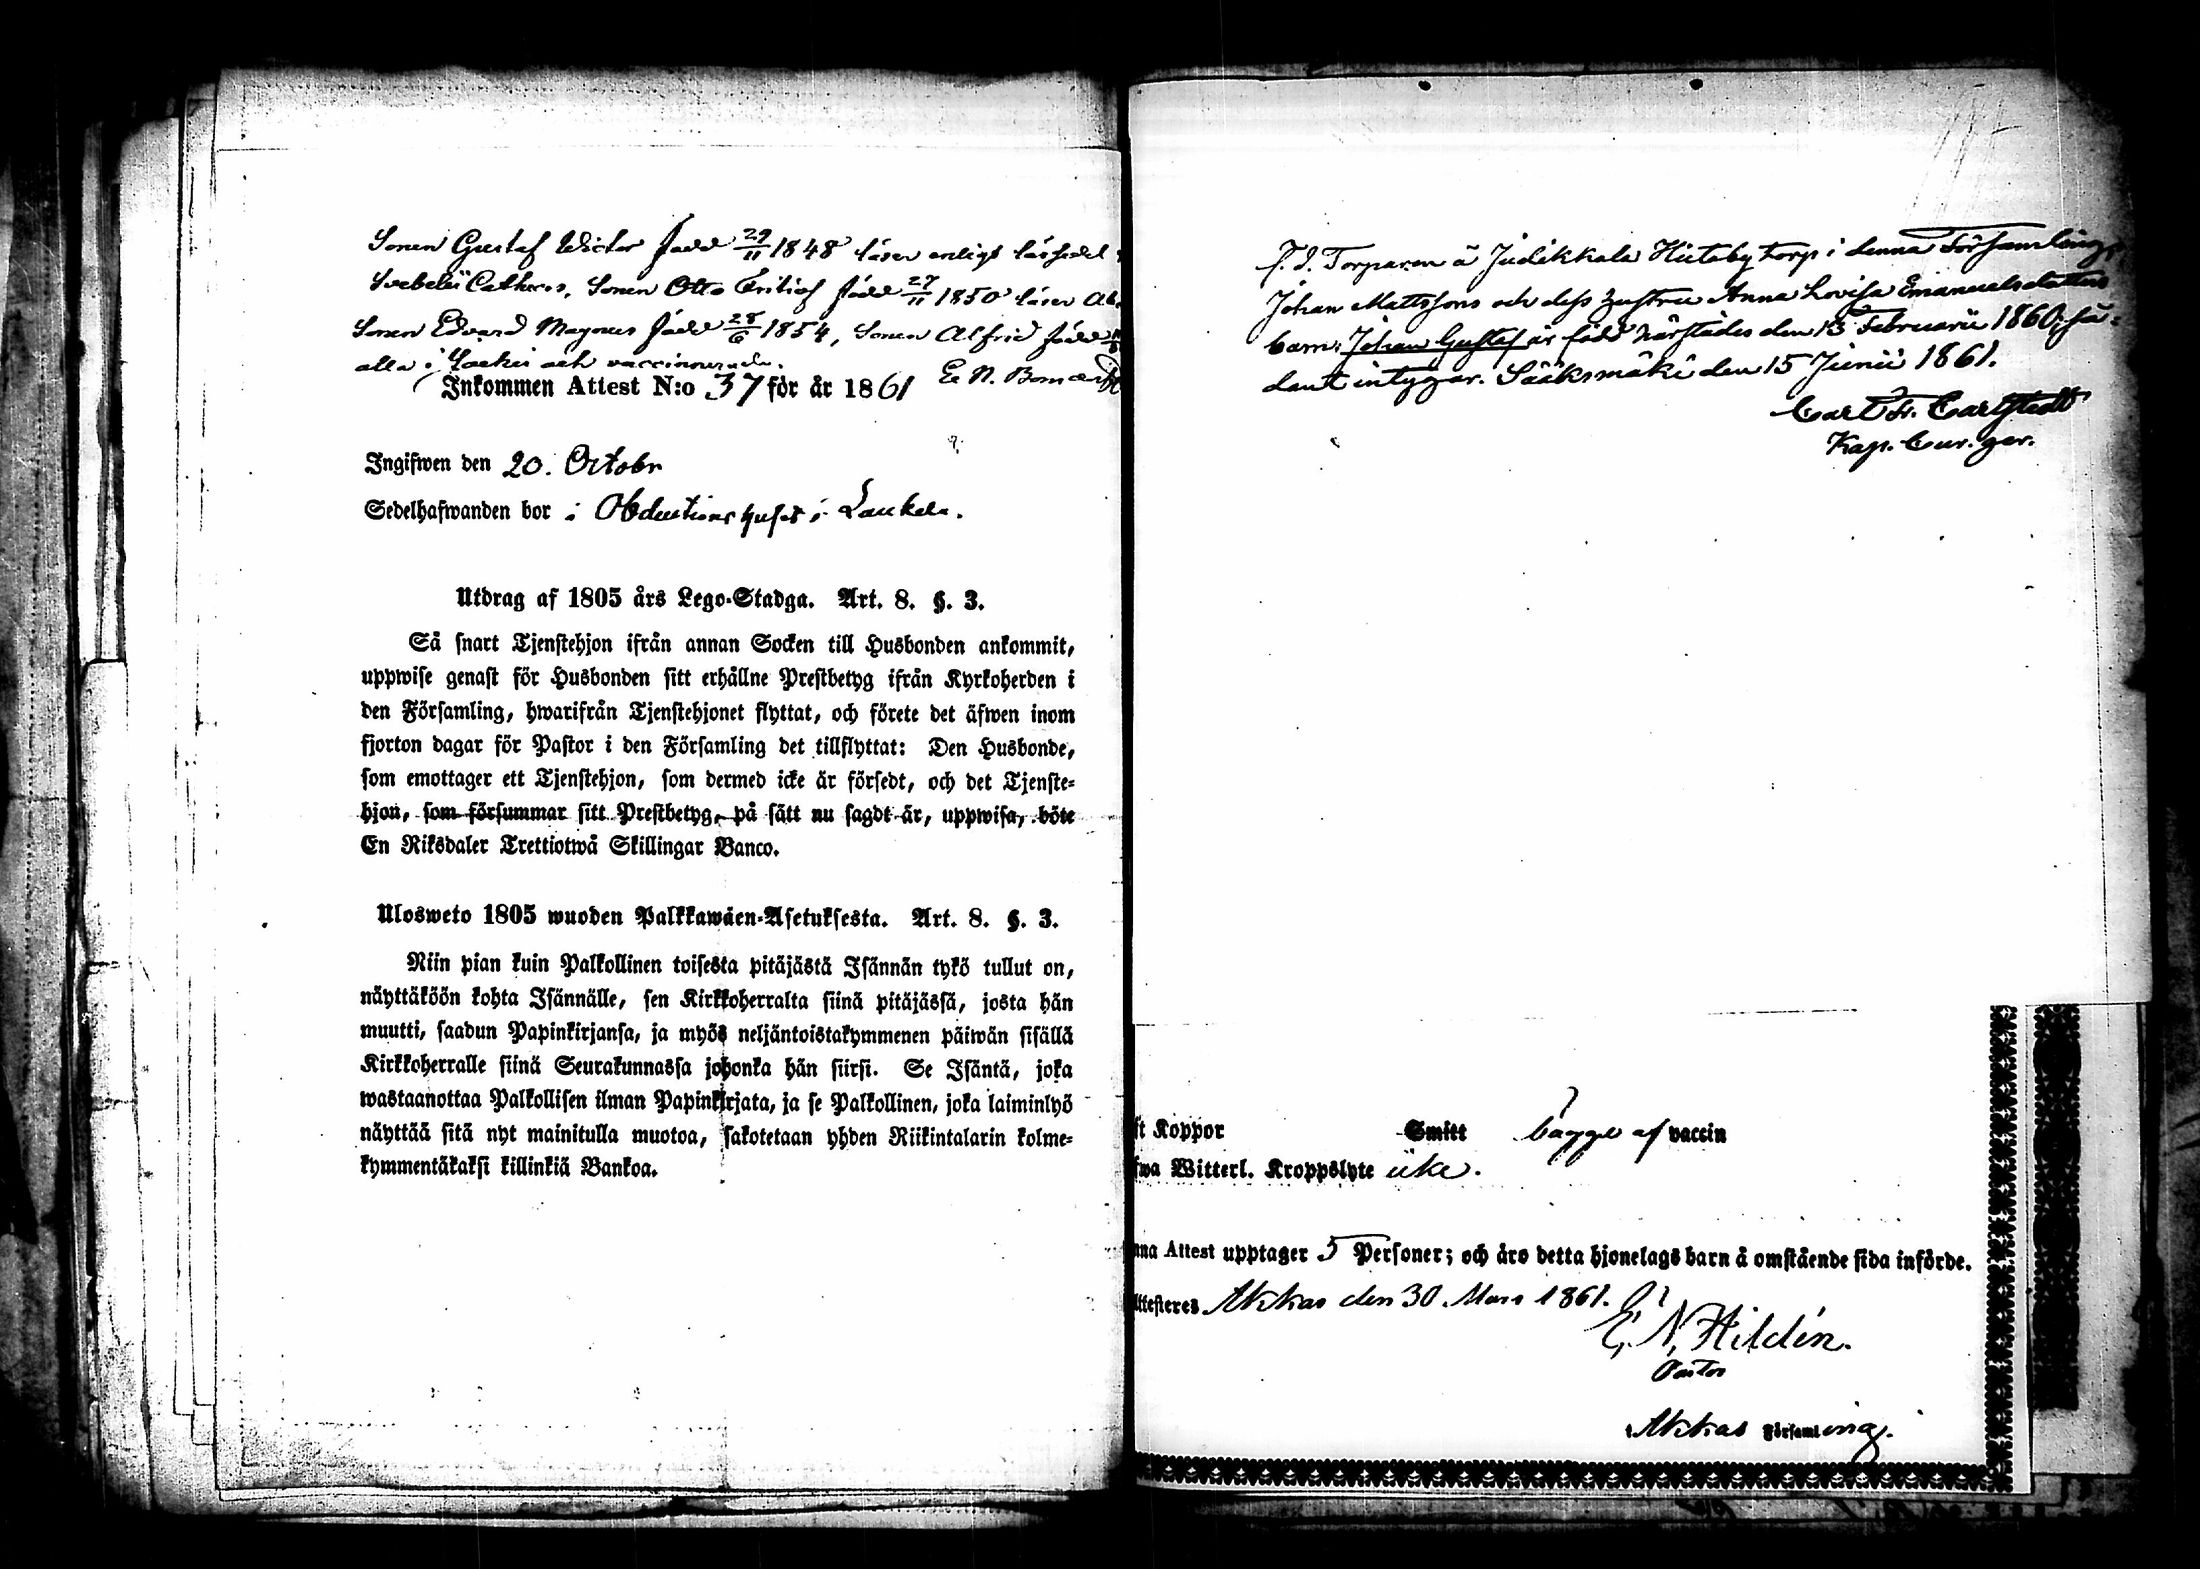 Sonen Gustaf Wictor född 29/11 1848 läser enligt läsesedel
Svebelii Catheces, Sonen Otto Fritiof född 27/11 1850 läser Ab.
Sonen Edvard Magnus född 28/6 1854, Sonen Alfrid född
alla i Jockis och vaccinnerade.
E. N. Bomansson
Inkommen Attest N:o 37 för år 1861
Ingifwen den 20. Octobr
Sedelhafwanden bor i Obductions huset i Laukela.
Utdrag af 1805 års Lego-Stadga. Art. 8. §. 3.
Så snart Tjenstehjon ifrån annan Socken till Husbonden ankommit,
uppwise genast för Husbonden sitt erhållne Prestbetyg ifrån Kyrkoherden i
den Församling, hwarifrån Tjenstehjonet flyttat, och förete det äfwen inom
fjorton dagar för Pastor i den Församling det tillflyttat: Den Husbonde,
som emottager ett Tjenstehjon, som dermed icke är försedt, och det Tjenste-
hjon, som försummar sitt Prestbetyg, på sätt nu sagdt är, uppwisa, böte
En Riksdaler Trettiotwå Skillingar Banco.
Ulosweto 1805 wuoden Palkkawäen-Asetuksesta. Art. 8. §. 3.
Niin pian kuin Palkollinen toisesta pitäjästä Isännän tykö tullut on,
näyttäköön kohta Isännälle, sen Kirkkoherralta siinä pitäjässä, josta hän
muutti, saadun Papinkirjansa, ja myös neljäntoistakymmenen päiwän sisällä
Kirkkoherralle siinä Seurakunnassa johonka hän siirsi. Se Isäntä, joka
wastaanottaa Palkollisen ilman Papinkirjata, ja se Palkollinen, joka laiminlyö
näyttää sitä nyt mainitulla muotoa, sakotetaan yhden Riikintalarin kolme-
kymmentäkaksi killinkiä Bankoa.
f. d. Torparen å Judikkala Hietaby torp i denna Församling,
Johan Mattssons och dess hustru Anna Lovisa Emanuelsdotters
barn: Johan Gustaf är född härstädes den 13 Februarii 1860; så-
dant intygar. Sääksmäki den 15 Junii 1861.
Carl Fr. Carlstedt
Kap. Cur. ger.
ft Koppor Smitt bägge af vaccin
fwa Witterl. Kroppslyte icke.
nna Attest upptager 5 Personer; och äro detta hjonelags barn å omstående sida införde.
Attesteres Akkas den 30 Mars 1861.
E. N. Hildén.
Pastor
i Akkas Församling.